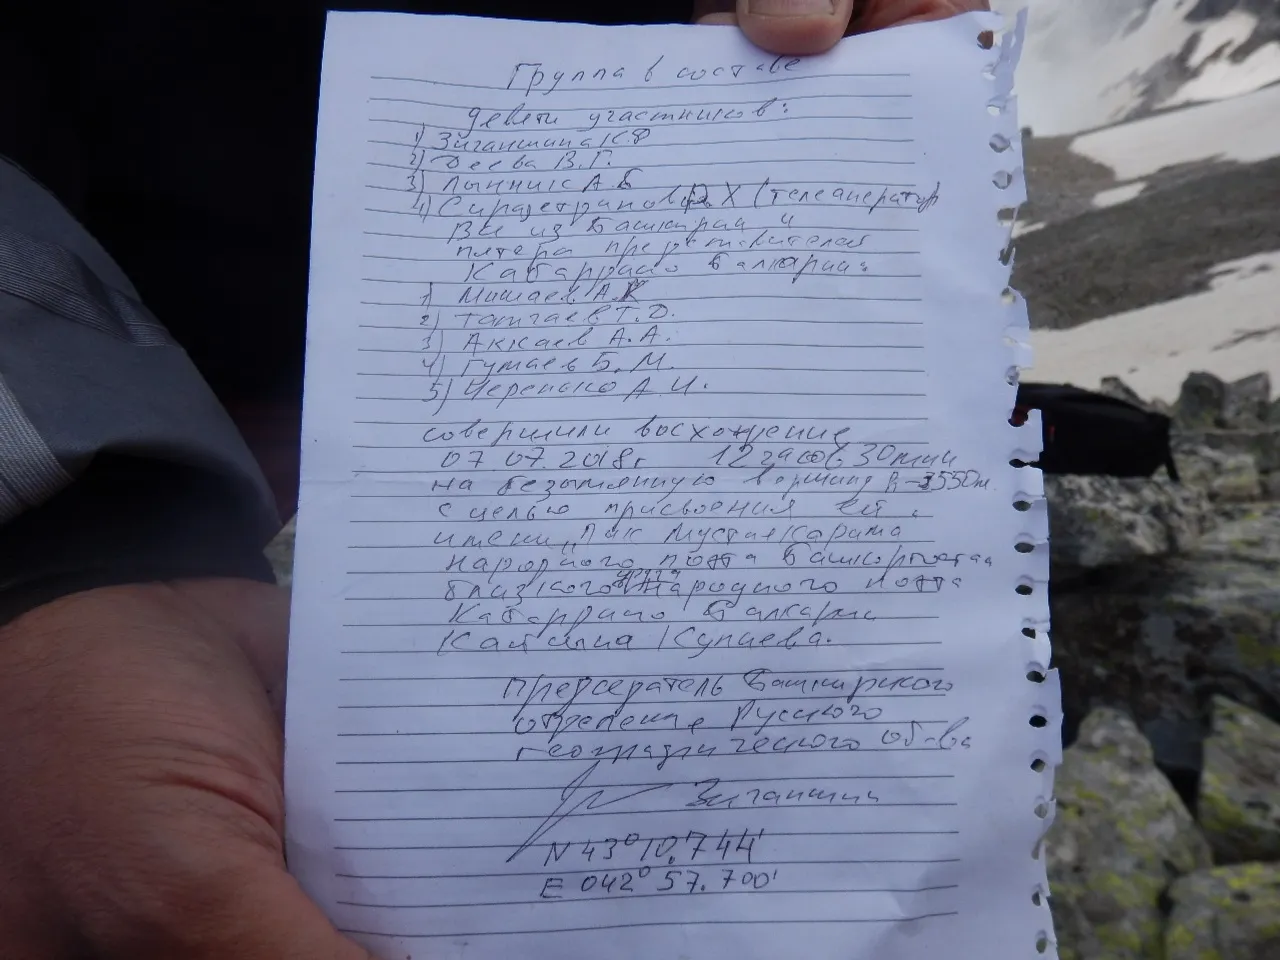 Группа в составе
девети участников:
1) Зиганшина К.Ф
2) Деева В.Г.
3) Лынник А.Б
4) Сиразетдинов Р.Х (телеоператор
Все из Башкирии и
пятера представителей
Кабаррдино Балкарии:
1) Мишаев А.К
2) Татчаев Т.Д.
3) Аккаев А.А.
4) Гутаев Б.М.
5) Черепько А.И.
совершили восхождение
07.07.2018г 12 часов 30 мин
на безымянную вершину h-3550м.
с целью присвоения ей
имени "Пик Мустая Карима
народного поэта Башкортостан
близкого друга народного поэта
Кабаррдино Балкарии
Кайсына Кулиева.
Председатель Башкирского
отделение Русского
географического об-ва
Зиганшин
N 43° 10.744'
E 042° 57.700'